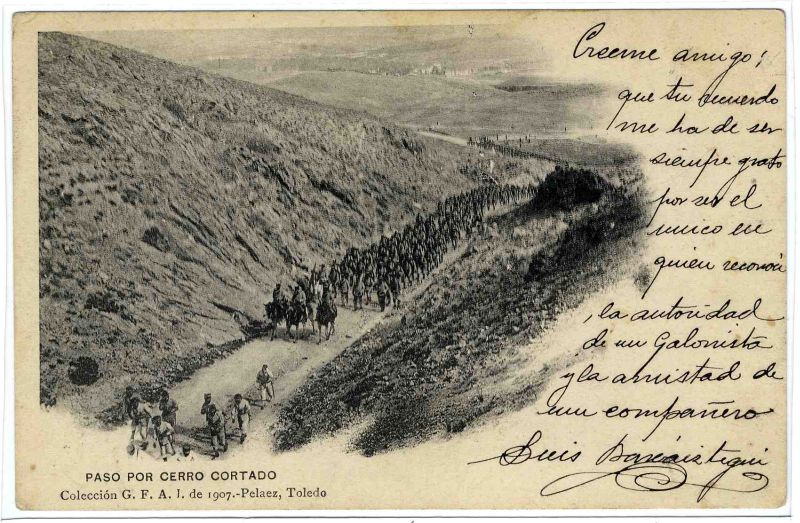 Creeme amigo;
que tu recuerdo
me ha de ser
siempre grato
por ser el
unico en
quien reconocí
la autoridad
de un Galonista
y la amistad de
un compañero
Luis
PASO POR CERRO CORTADO
Colección G. F. A. I. de 1907.-Pelaez, Toledo